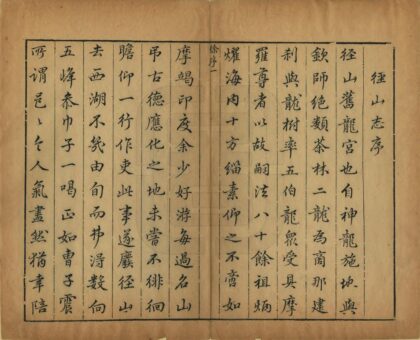 徑山志序
徑山舊龍宮也自神龍施地與
欽師絕類茶林二龍為商那建
剎與龍樹率五伯龍眾受具摩
羅尊者以故嗣法八十餘祖炳
燿海內十方緇素仰之不啻如
徐序一
摩竭印度余少好游每過名山
弔古德應化之地未嘗不徘徊
瞻仰一行作吏此事遂廢徑山
去西湖不幾由旬而弗得數向
五峰叅巾子一喝正如曹子震
所謂邑邑人氣盡然猶幸陪